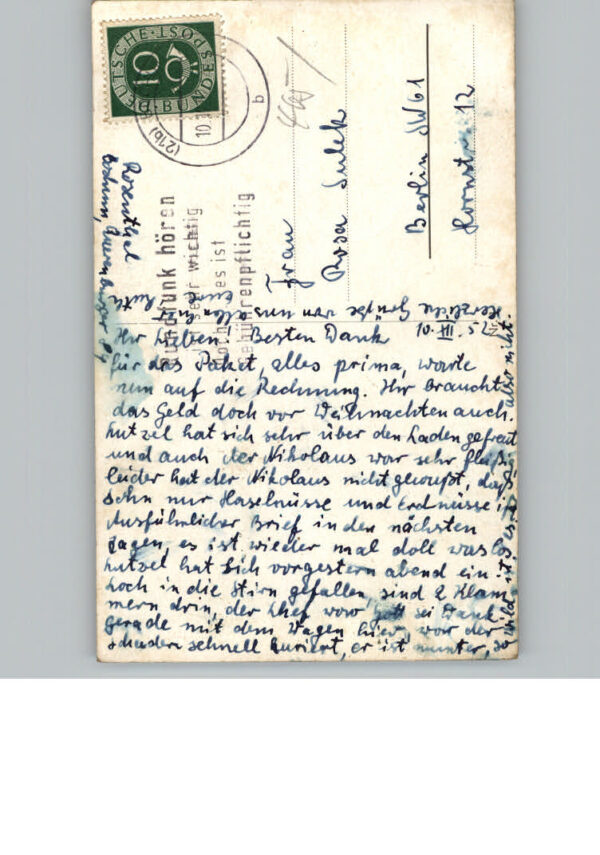 DEUTSCHE BUNDESPOST
10
(21b)
10.
b
Rundfunk hören
wichtig
es ist
gebührenpflichtig
Frau
Rosa Sulek
Berlin SW 61
Hornstr. 12
Rosenthal
Bochum,
10. XII. 52
Ihr Lieben! Besten Dank
für das Paket, alles prima, warte
nun auf die Rechnung. Ihr braucht
das Geld doch vor Weihnachten auch.
Hutzel hat sich sehr über den Laden gefreut
und auch der Nikolaus war sehr fleißig,
leider hat der Nikolaus nicht gewußt, daß
Sohn nur Haselnüsse und Erdnüsse ißt.
Ausführlicher Brief in den nächsten
Tagen, es ist wieder mal doll was los
Hutzel hat sich vorgestern abend ein
Loch in die Stirn gefallen, sind 2 Klam-
mern drin, der Chef war gott sei Dank
gerade mit dem Wagen hier, war der
Schaden schnell kuriert, er ist munter, so
wild ist es
also nicht.
Herzliche Grüße von uns allen
eure Ruth